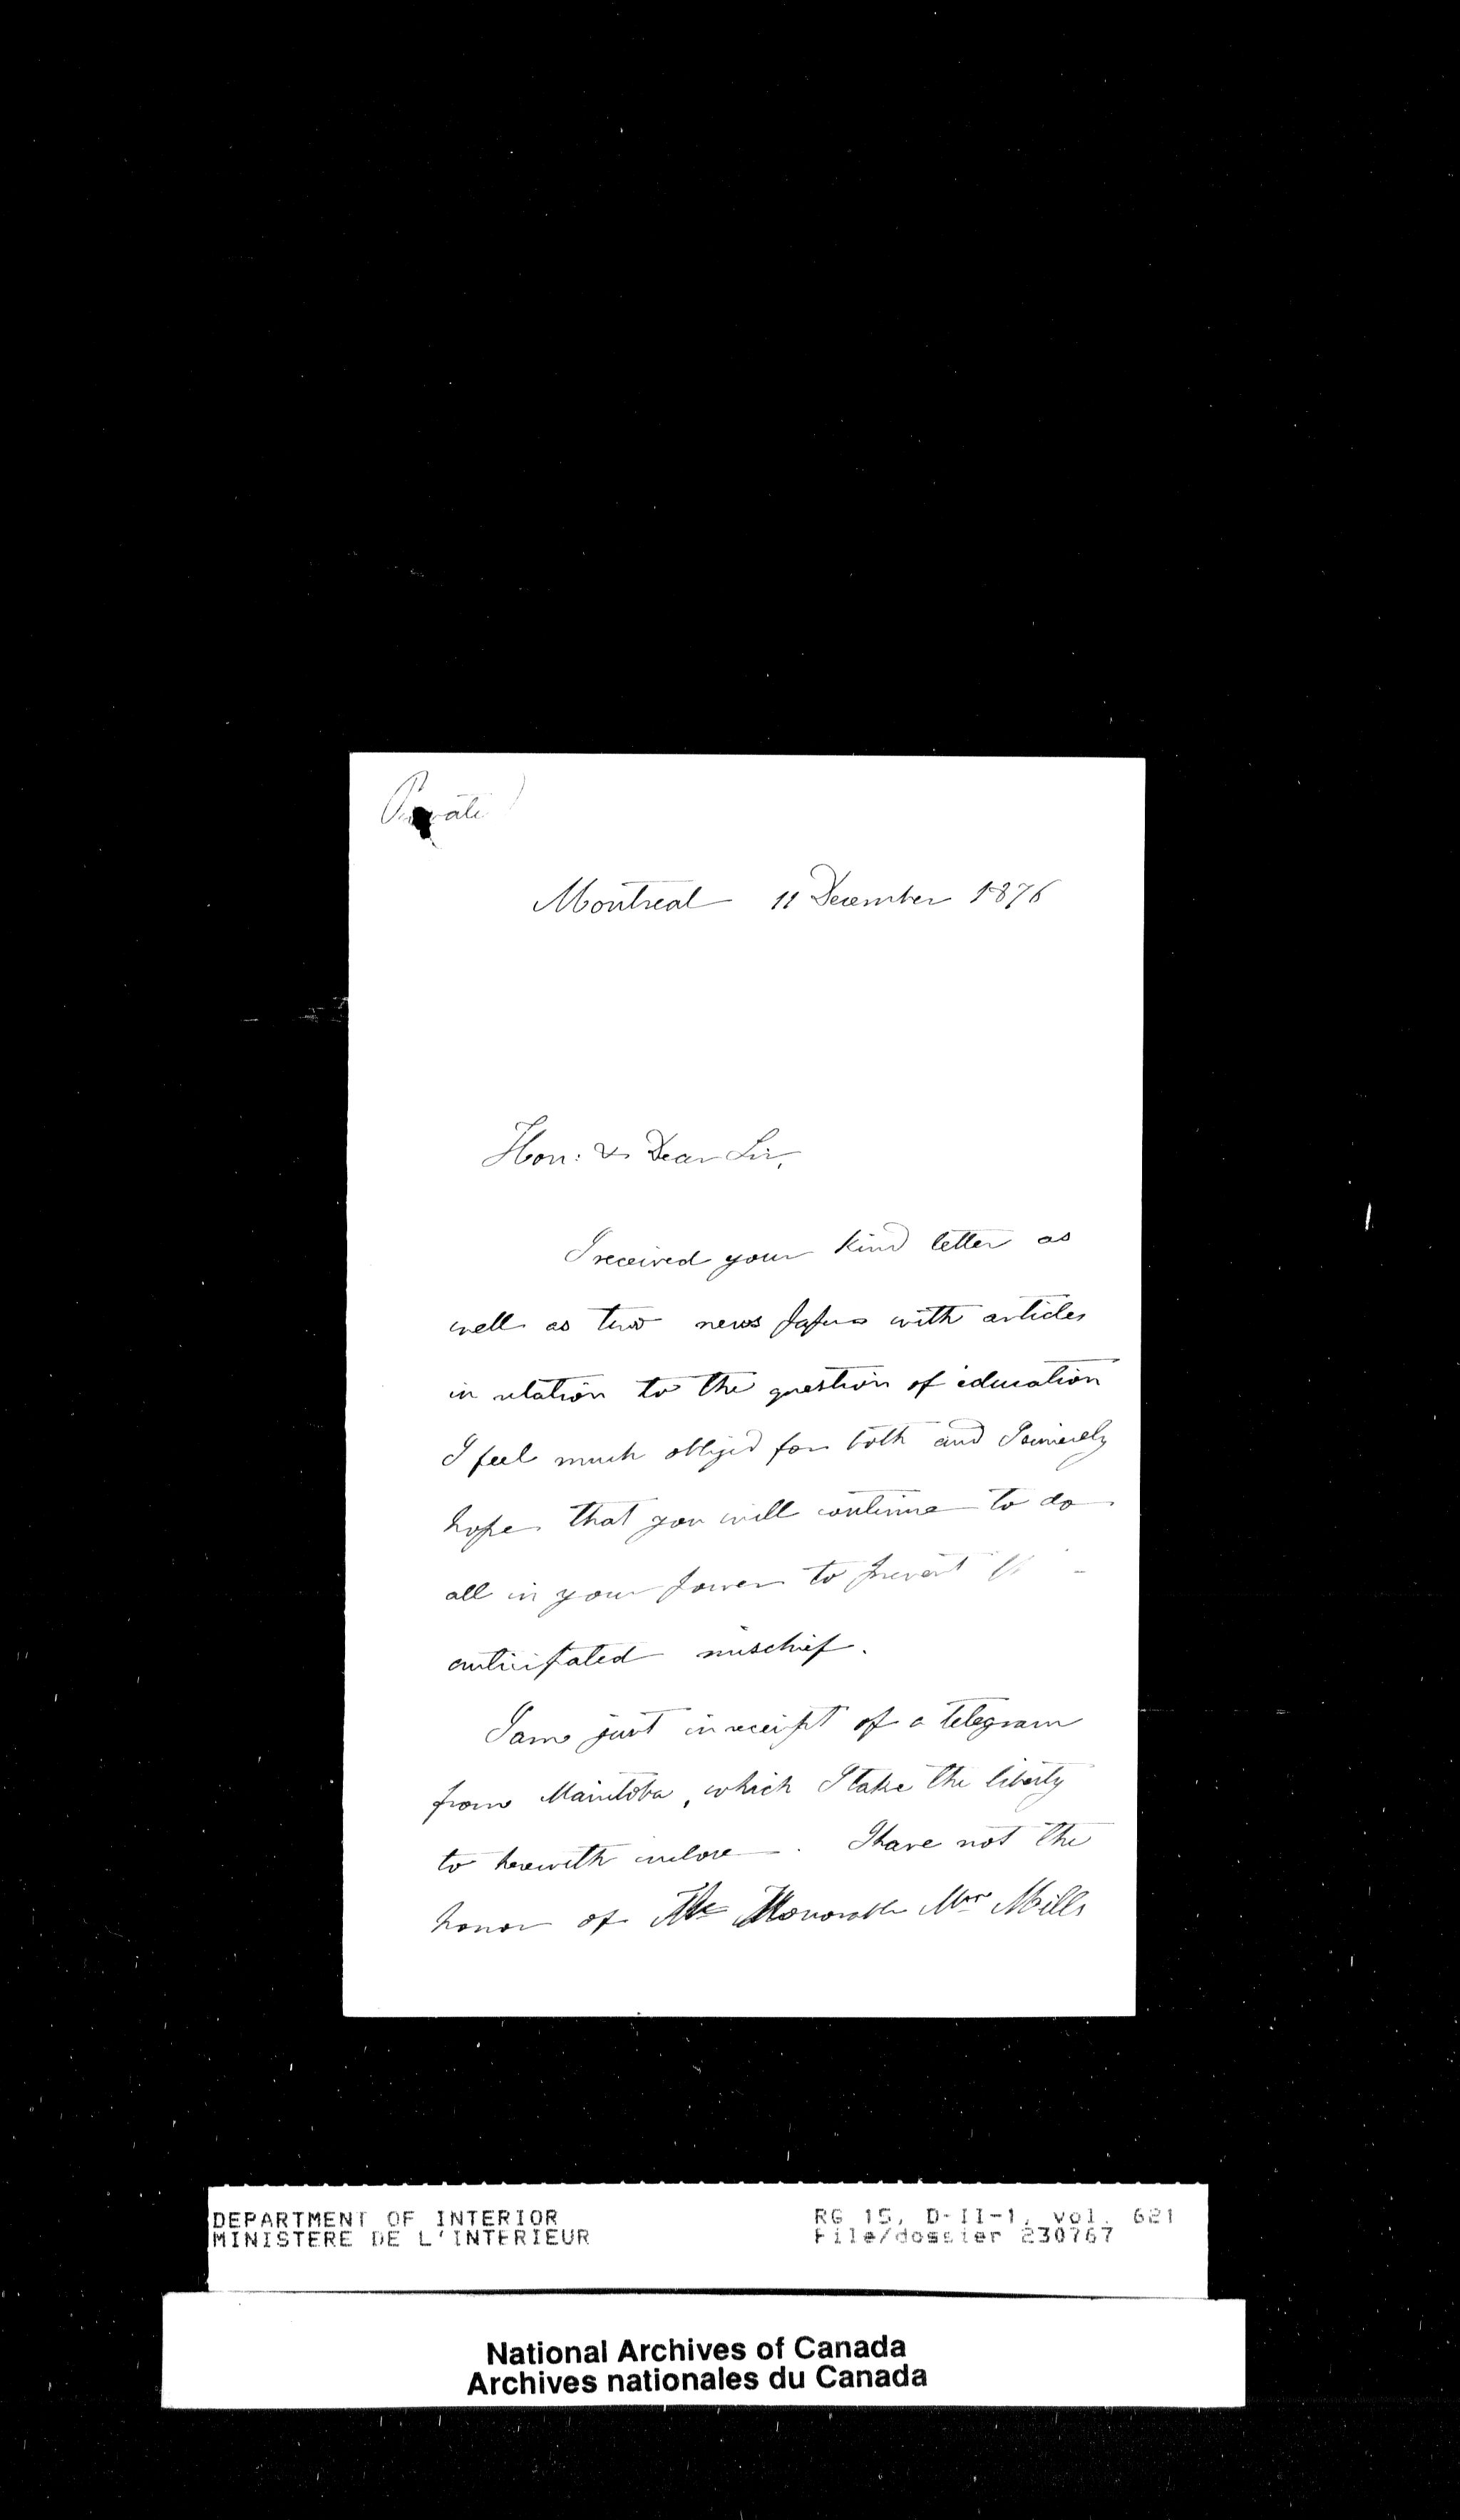 Private
Montreal 11 December 1876
Hon: & Dear Sir,
I received your kind letter as
well as two news papers with articles
in relation to the question of education
I feel much obliged for both and I sincerely
hope that you will continue to do
all in your power to prevent
anticipated mischief.
I am just in receipt of a telegram
from Manitoba, which I take the liberty
to herewith inclose. I have not the
honor of the Honorable Mr Mills
DEPARTMENT OF INTERIOR RG 15, D-II-1, vol. 621
MINISTERE DE L'INTERIEUR File/dossier 230767
National Archives of Canada
Archives nationales du Canada